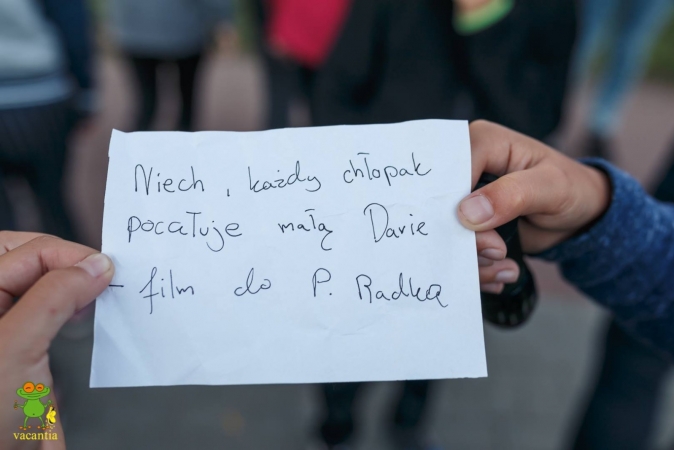 Niech, każdy chłopak
pocałuje małą Darie
- film do P. Radka
vacantia